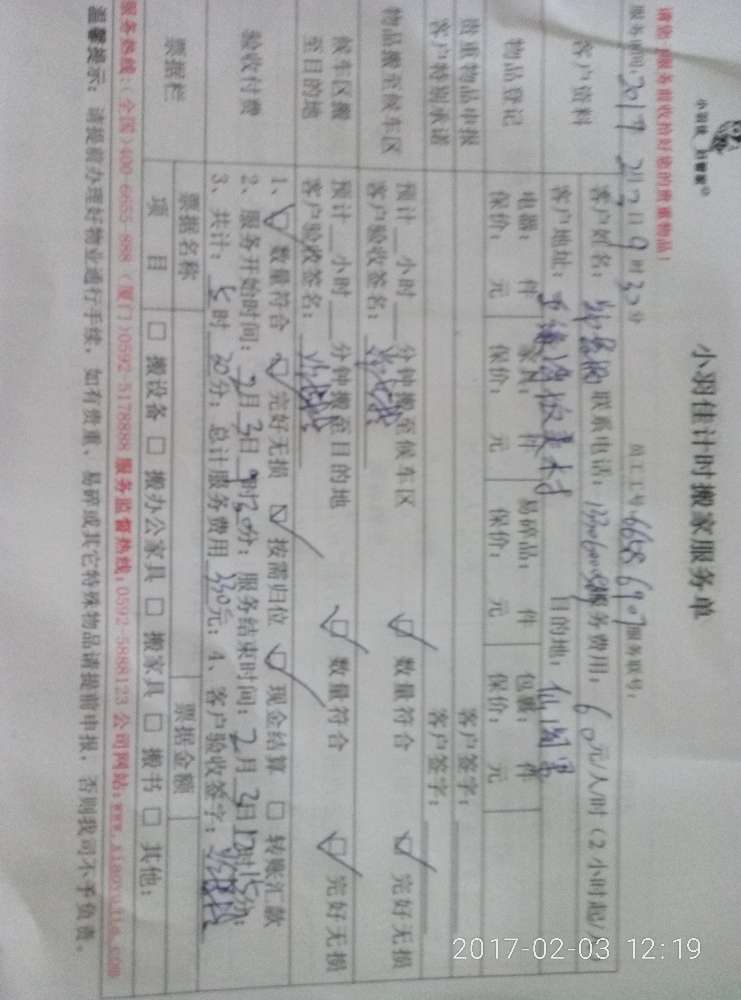 小羽佳 好管家
小羽佳计时搬家服务单
请您 服务前收拾好您的贵重物品!
服务时间: 2017 2月3日9时30分 员工工号: 6658 6907 服务联号:
客户资料
客户姓名: 联系电话: 服务费用: 60元/人/时(2小时起/
客户地址: 目的地:
物品登记
电器: 件 家具: 件 易碎品: 件 包裹: 件
保价: 元 保价: 元 保价: 元 保价: 元
贵重物品申报 客户签字:
客户特别承诺 客户签字:
物品搬至候车区
预计__小时___分钟搬至候车区 ☑ 数量符合 ☑ 完好无损
客户验收签名:
候车区搬至目的地
预计__小时___分钟搬至目的地 ☑ 数量符合 ☑ 完好无损
客户验收签名:
验收付费
1、☑ 数量符合 ☑ 完好无损 ☑ 按需归位 ☑ 现金结算 □ 转账汇款
2、服务开始时间: 2月3日9时30分; 服务结束时间: 2月3日12时15分;
3、共计: 时 分; 总计服务费用 330元; 4、客户验收签字:
票据栏
票据名称 票据金额
项 目 □ 搬设备 □ 搬办公家具 □ 搬家具 □ 搬书 □ 其他:
服务热线:(全国)400-6655-888 (厦门)0592-5178888 服务监督热线:0592-5888123 公司网站:www.xiaoyujia.com
温馨提示: 请提前办理好物业通行手续, 如有贵重、易碎或其它特殊物品请提前申报, 否则我司不予负责。
2017-02-03 12:19